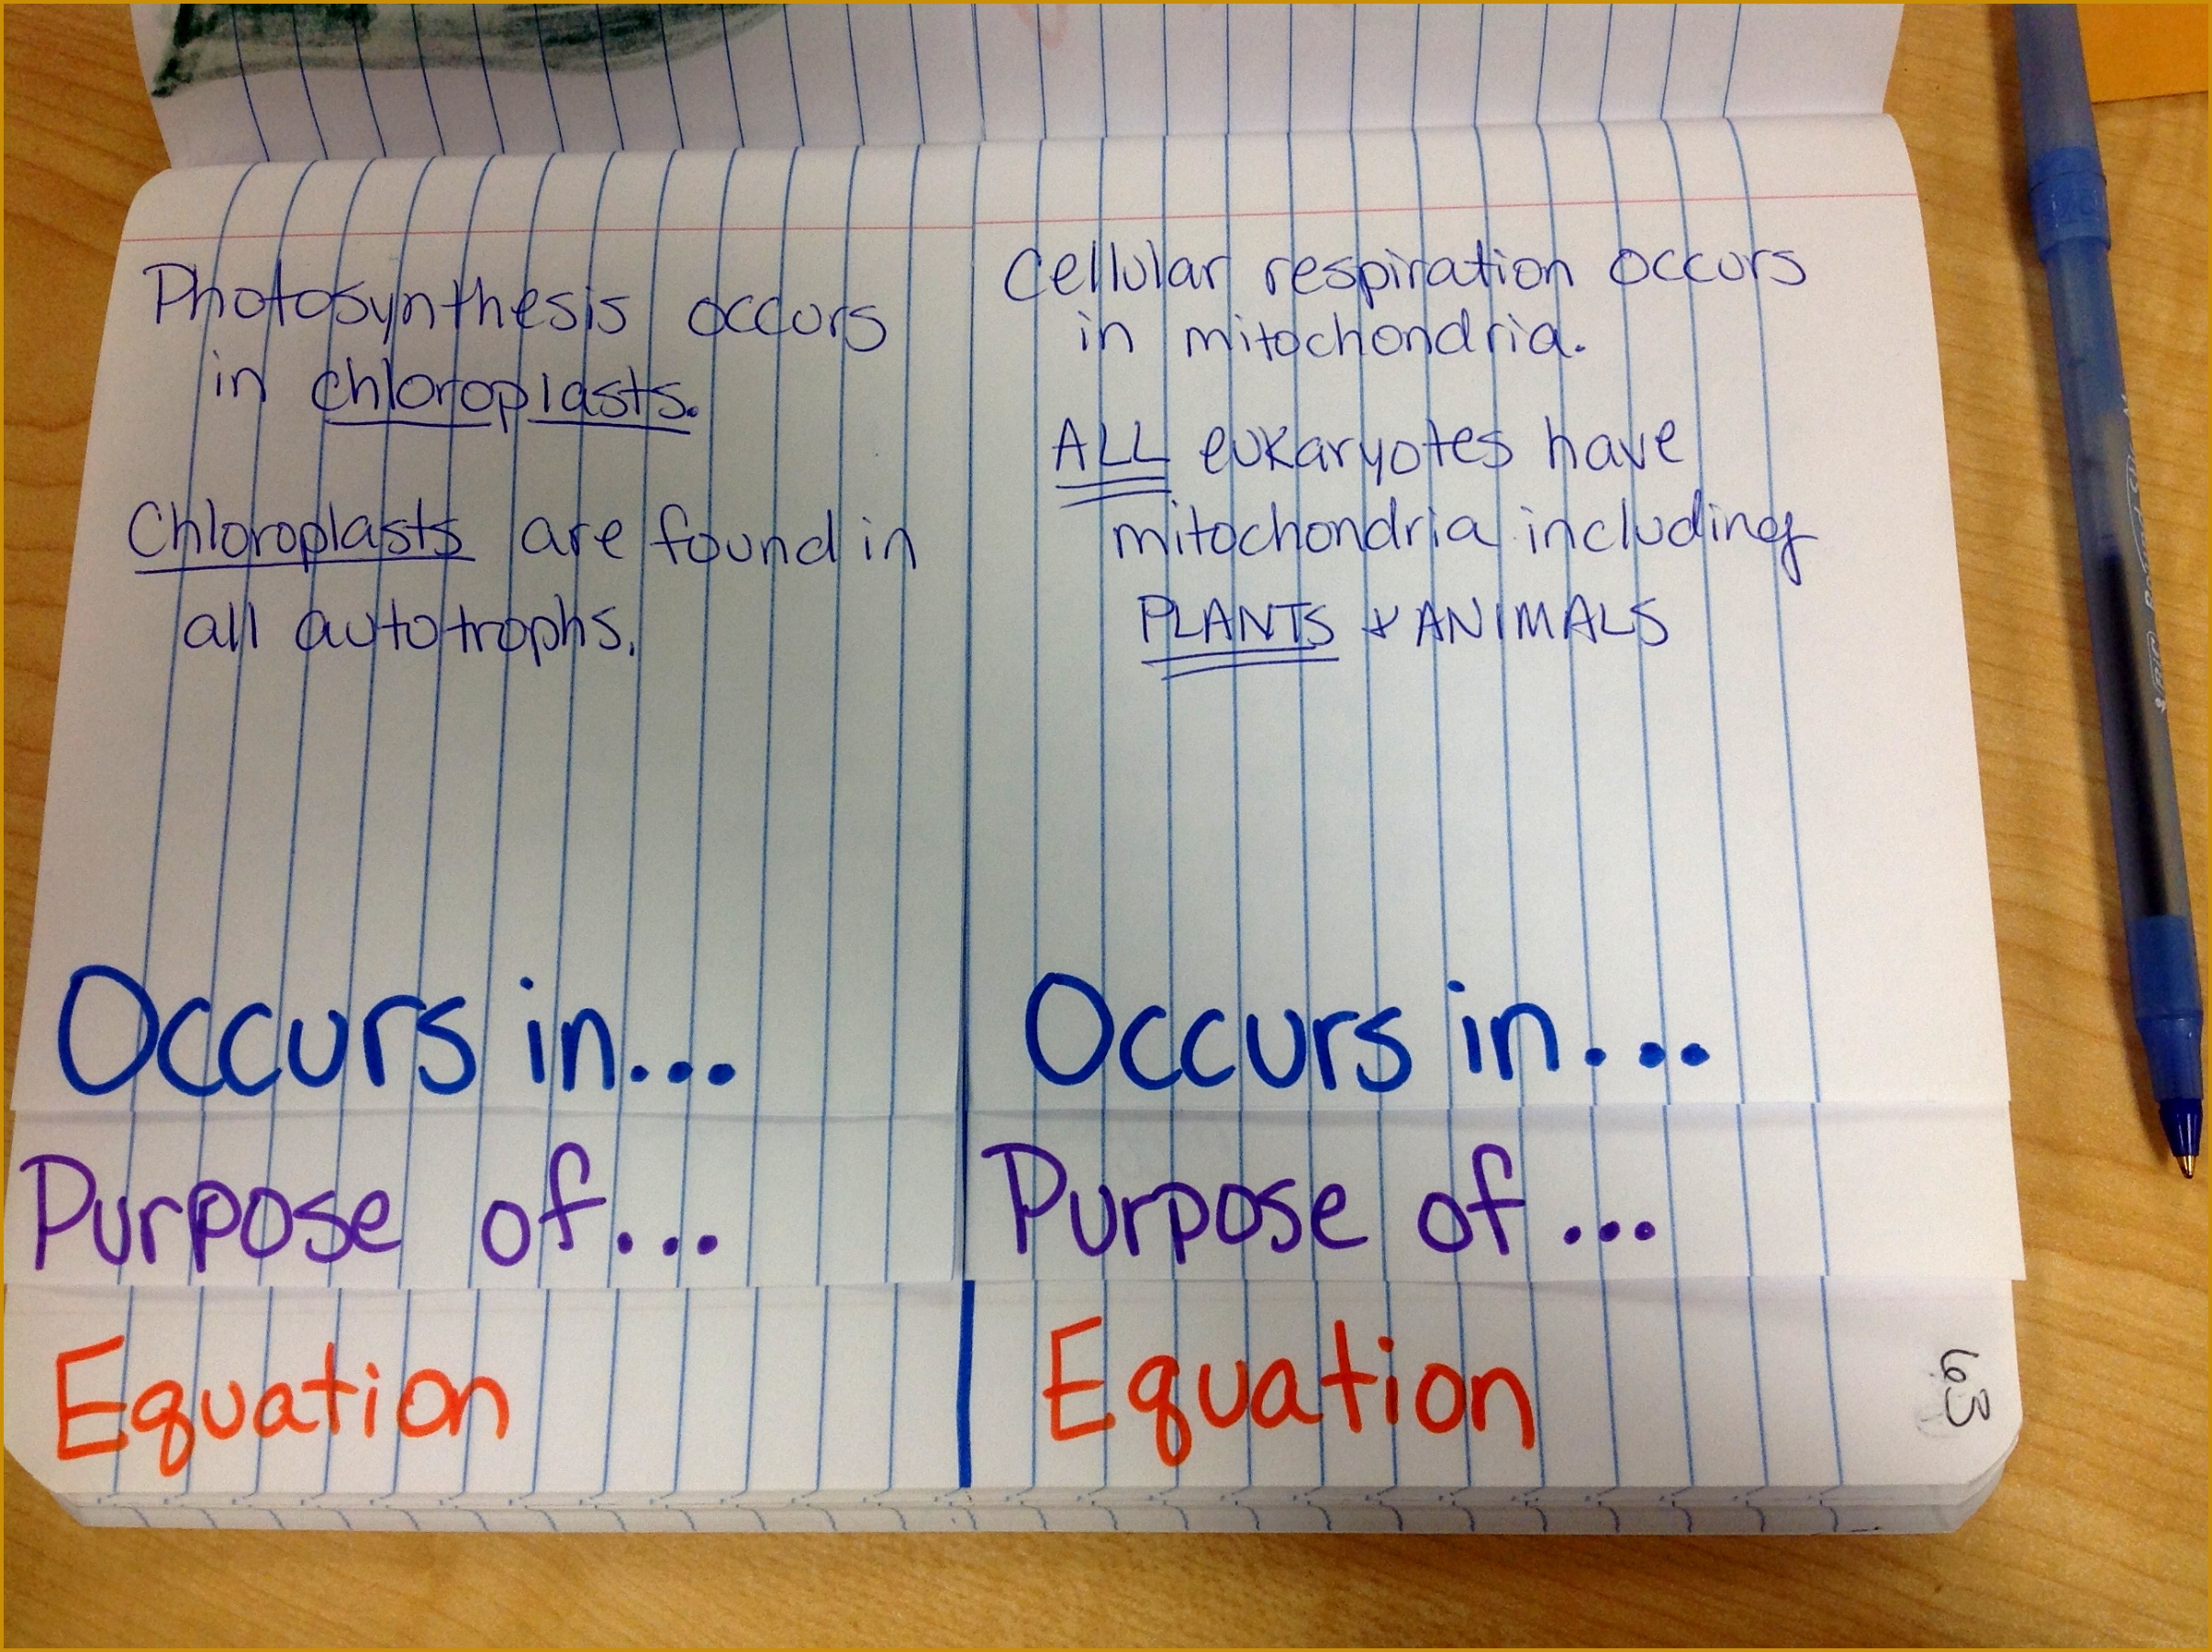 Photosynthesis occurs
in chloroplasts.
Chloroplasts are found in
all autotrophs.
Cellular respiration occurs
in mitochondria.
ALL eukaryotes have
mitochondria including
PLANTS & ANIMALS
Occurs in...
Occurs in...
Purpose of...
Purpose of...
Equation
Equation
63
BIC